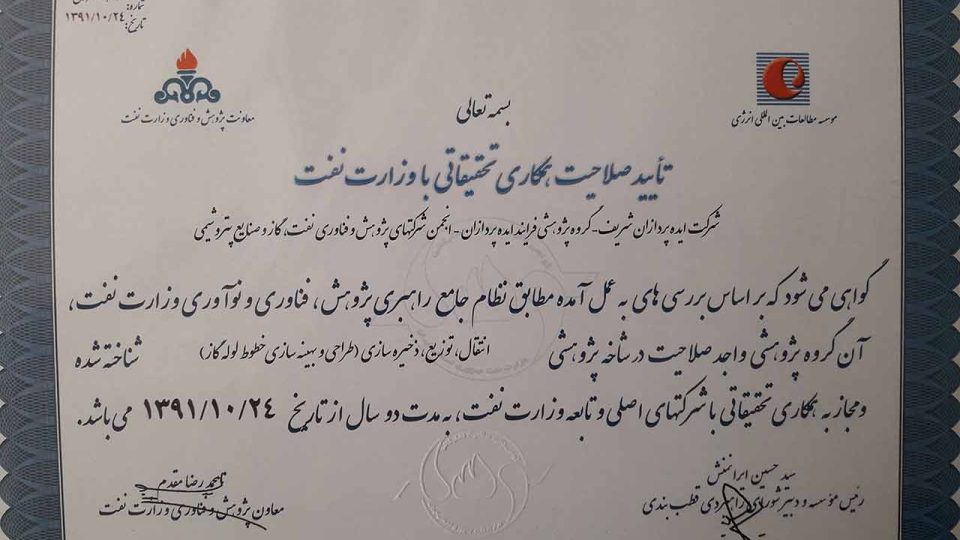 شماره:
تاریخ: ۱۳۹۱/۱۰/۲۴
معاونت پژوهش و فناوری وزارت نفت
موسسه مطالعات بین المللی انرژی
بسمه تعالی
تأیید صلاحیت همکاری تحقیقاتی با وزارت نفت
شرکت ایده پردازان شریف-گروه پژوهشی فرایند ایده پردازان - انجمن شرکتهای پژوهش و فناوری نفت، گاز و صنایع پتروشیمی
گواهی می شود که بر اساس بررسی های به عمل آمده مطابق نظام جامع راهبری پژوهش، فناوری و نوآوری وزارت نفت،
آن گروه پژوهشی واجد صلاحیت در شاخه پژوهشی انتقال، توزیع، ذخیره سازی (طراحی و بهینه سازی خطوط لوله گاز) شناخته شده
و مجاز به همکاری تحقیقاتی با شرکتهای اصلی و تابعه وزارت نفت، به مدت دو سال از تاریخ ۱۳۹۱/۱۰/۲۴ می باشد.
سید حسین ایرانمنش
رئیس مؤسسه و دبیر شورای راهبردی قطب بندی
محمد رضا مقدم
معاون پژوهش و فناوری وزارت نفت